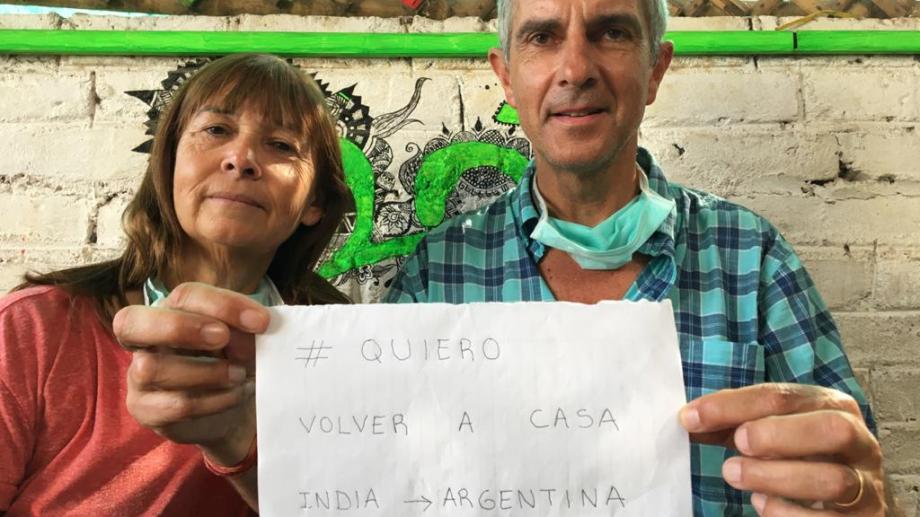 # QUIERO
VOLVER A CASA
INDIA → ARGENTINA